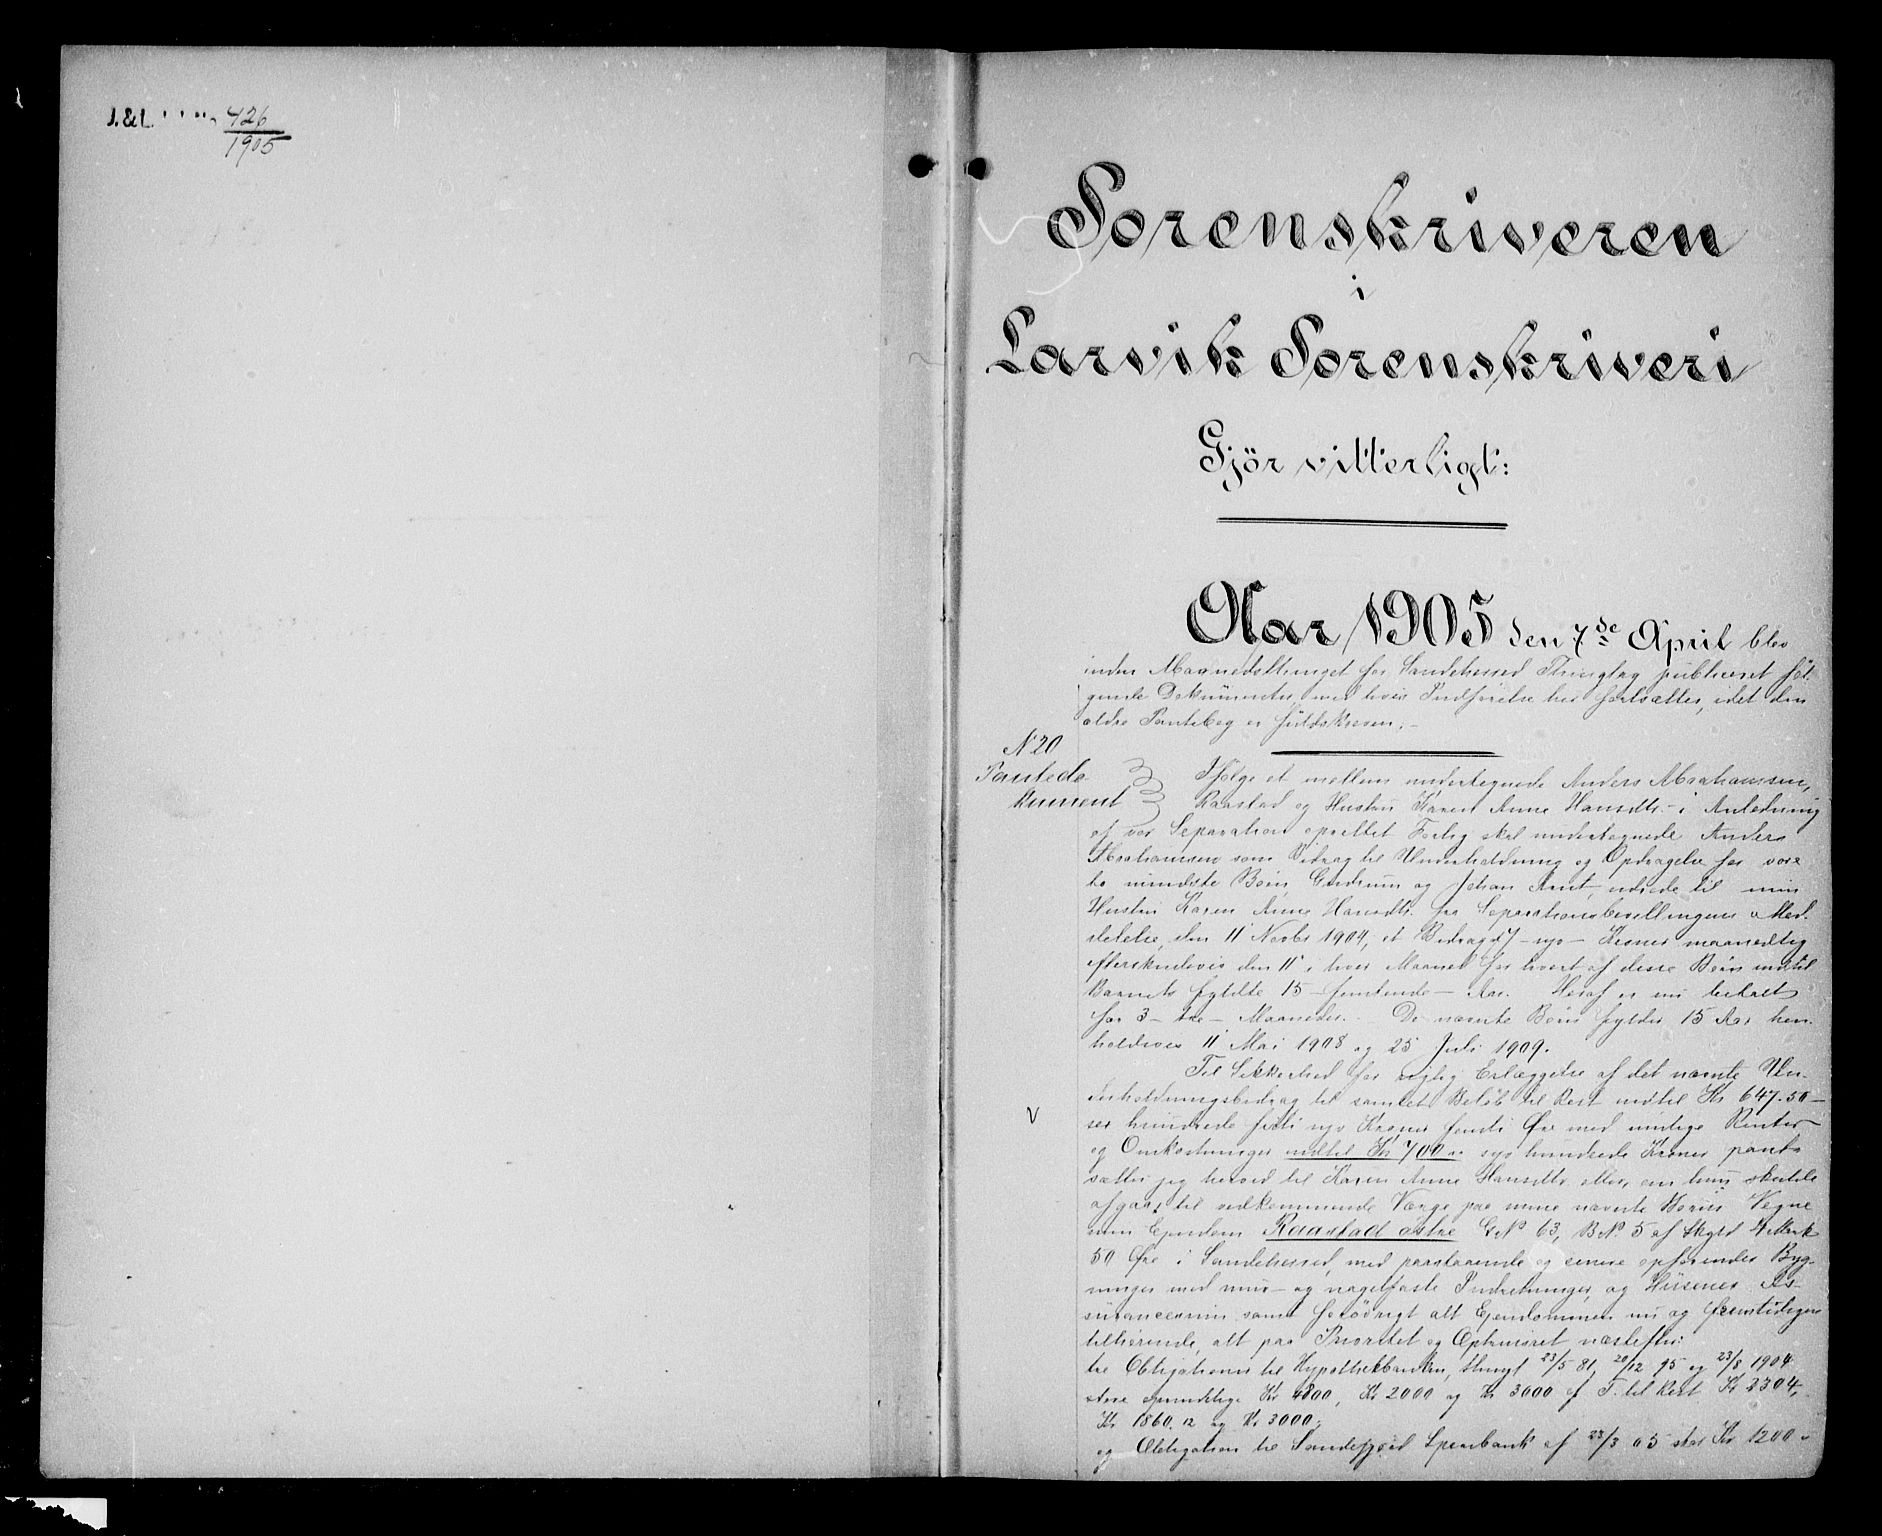 J. & L.
426
1905
Sorenskriveren
i
Larvik Sorenskriveri
Gjör vitterligt:
Aar 1905 den 7de April blev
under Maanedsthinget for Sandeherred Thinglag publiceret föl-
gende Dokumenter, med hvis Indförelse her fortsættes, idet den
ældre Pantebog er fuldskreven.-
N 20
Pantedo-
kument
Ifölge et mellem undertegnede Anders Abrahamsen,
Raastad og Hustru Karen Anne Hansdtr. i Anledning
af vor Separation oprettet Forlig skal undertegnede Anders
Abrahamsen som Bidrag til Underholdning og Opdragelse for vore
to mindste Börn, Gudrun og Johan Arnt, udrede til min
Hustru Karen Anne Hansdtr. fra Separationsbevillingens Med-
delelse, den 11 Novbr 1904, et Bidrag 7 - syv - Kroner maanedlig
efterskudsvis den 11 i hver Maaned for hvert af disse Börn indtil
Barnets fyldte 15 - femtende - Aar. Heraf er nu betalt
for 3 - tre - Maaneder. De nævnte Börn fylder 15 Aar hen-
holdsvis 11 Mai 1908 og 25 Juli 1909.
Til Sikkerhed for rigtig Erlæggelse af det nævnte Un-
derholdningsbidrag til samlet Belöb til Rest indtil Kr 647.50 -
V
sex hundrede förti syv Kroner femti Öre med mulige Renter
og Omkostninger indtil Kr 700 .. syv hundrede Kroner pant-
sætter jeg herved til Karen Anne Hansdtr. eller, om hun skulde
afgaa, til vedkommende Værge paa mine nævnte Börns Vegne
min Eiendom Raastad östre G.N. 63, B.N. 5 af Skyld 4 Mark
50 Öre i Sandeherred, med paastaaende og senere opförendes Byg-
ninger med mur- og nagelfaste Indretninger, og Husenes As-
surancesum samt forövrigt alt Eiendommen nu og fremtidigen
tilhörende, alt paa Prioritet og Optrinsret næstefter:
tre Obligationer til Hypothekbanken, thingl 23/5 81, 20/12 95 og 23/8 1904
store oprindelige Kr 4800, Kr 2000 og Kr 3000 af T. til Rest Kr 3304,
Kr 1860.12 og Kr 3000,
og Obligation til Sandefjord Sparebank af 23/3 05 stor Kr 1200